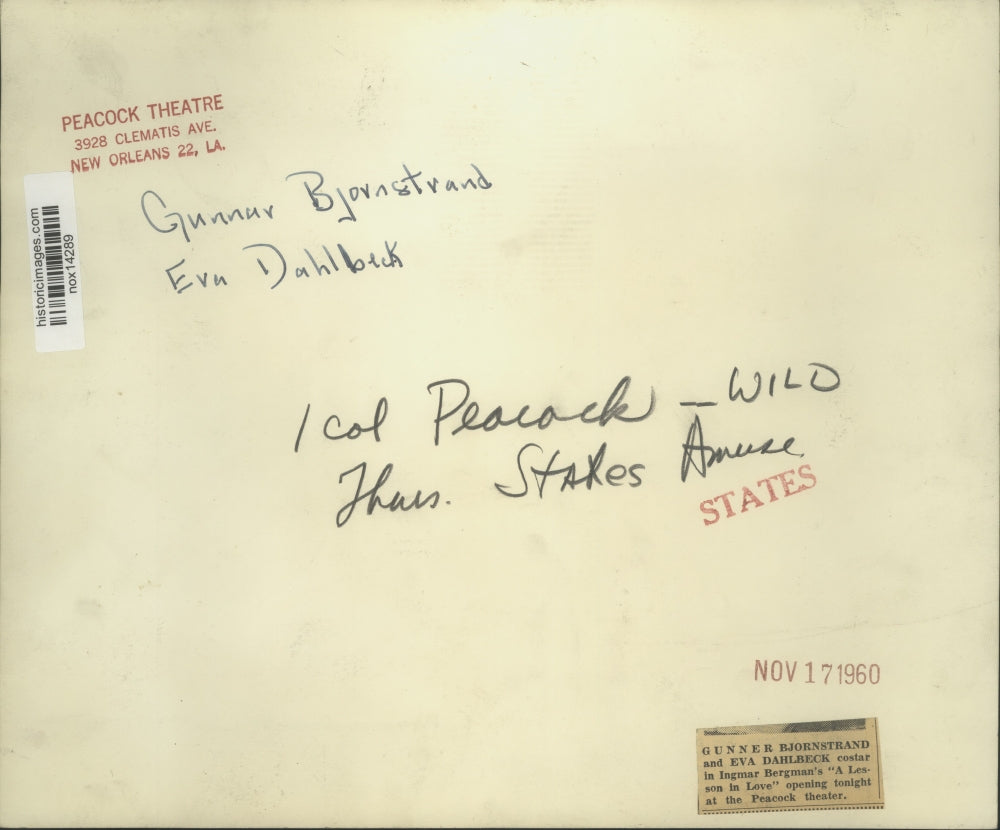 PEACOCK THEATRE
3928 CLEMATIS AVE.
NEW ORLEANS 22, LA.
historicimages.com
nox14289
Gunnar Bjornstrand
Eva Dahlbeck
1 col Peacock — WILD
Thurs. States Amuse
STATES
NOV 17 1960
GUNNER BJORNSTRAND
and EVA DAHLBECK costar
in Ingmar Bergman's "A Les-
son in Love" opening tonight
at the Peacock theater.